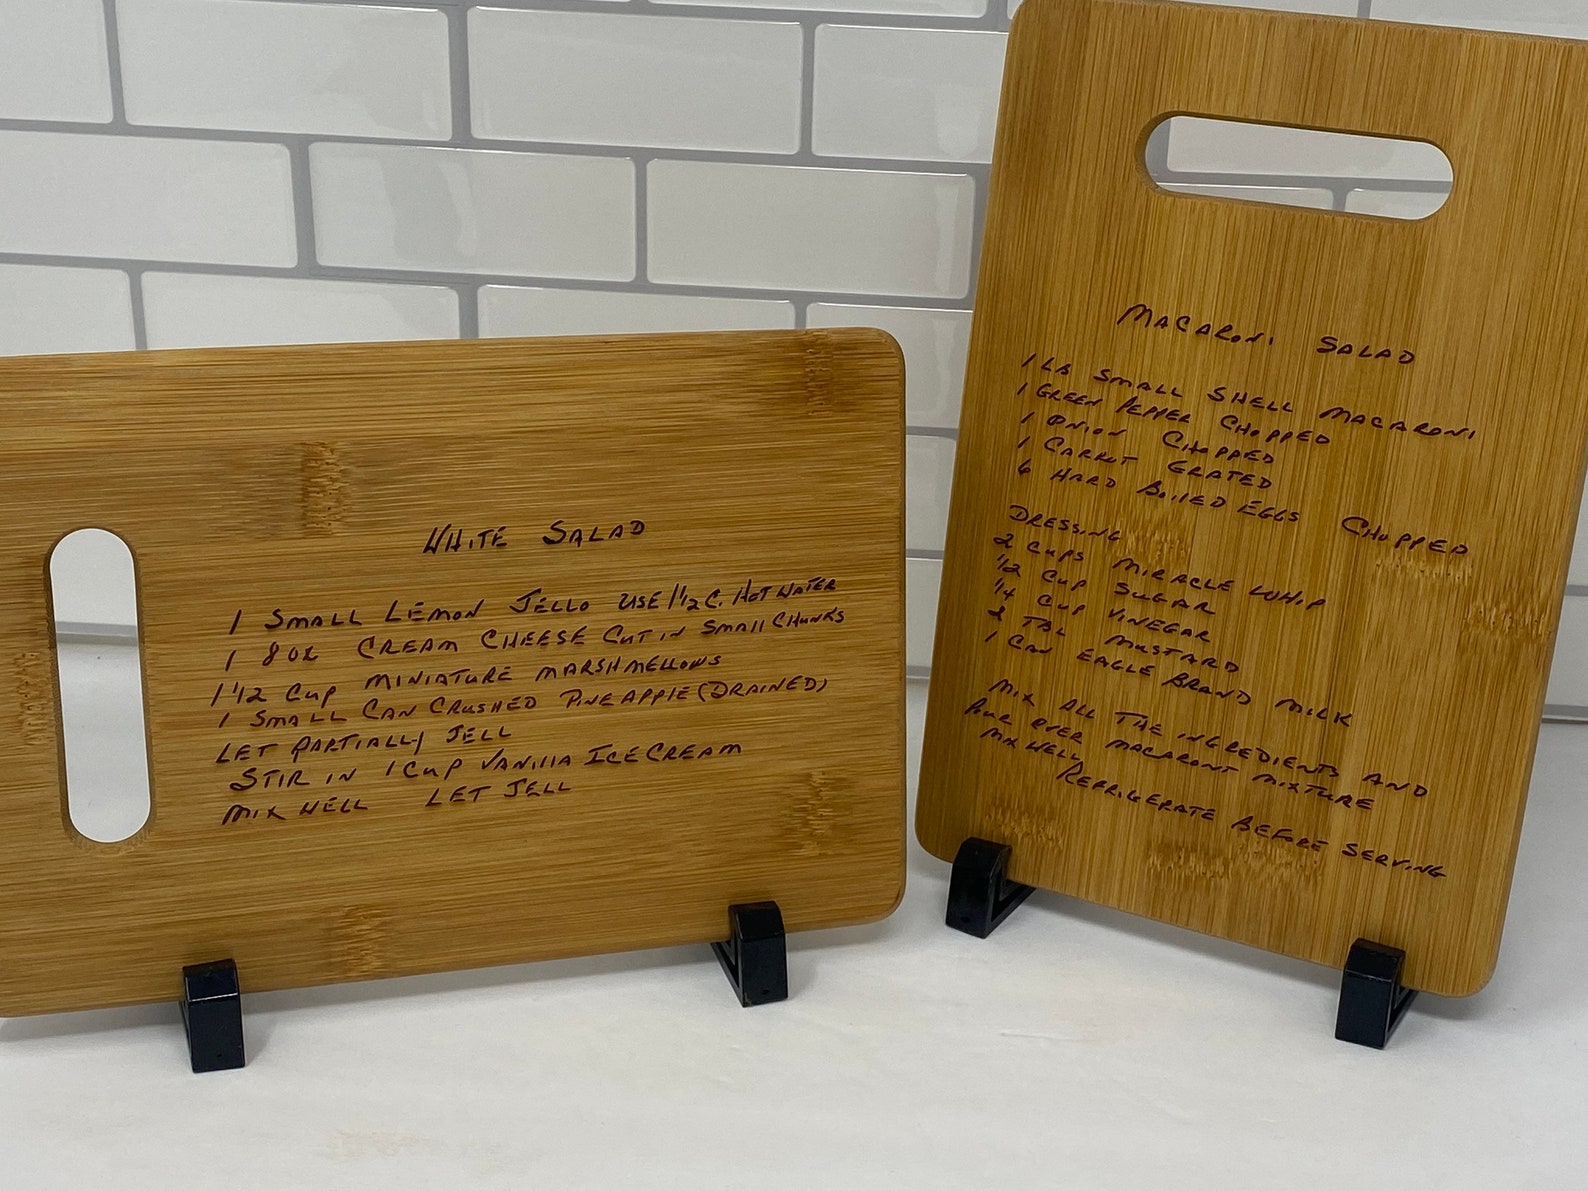 WHITE SALAD
1 SMALL LEMON JELLO USE 1 1/2 C. HOT WATER
1 8 OZ CREAM CHEESE CUT IN SMALL CHUNKS
1 1/2 CUP MINIATURE MARSHMELLOWS
1 SMALL CAN CRUSHED PINEAPPLE (DRAINED)
LET PARTIALLY JELL
STIR IN 1 CUP VANILLA ICE CREAM
MIX WELL LET JELL
MACARONI SALAD
1 LB SMALL SHELL MACARONI
1 GREEN PEPPER CHOPPED
1 ONION CHOPPED
1 CARROT GRATED
6 HARD BOILED EGGS CHOPPED
DRESSING
2 CUPS MIRACLE WHIP
1/2 CUP SUGAR
1/4 CUP VINEGAR
2 TBL MUSTARD
1 CAN EAGLE BRAND MILK
MIX ALL THE INGREDIENTS AND
POUR OVER MACARONI MIXTURE
MIX WELL
REFRIGERATE BEFORE SERVING